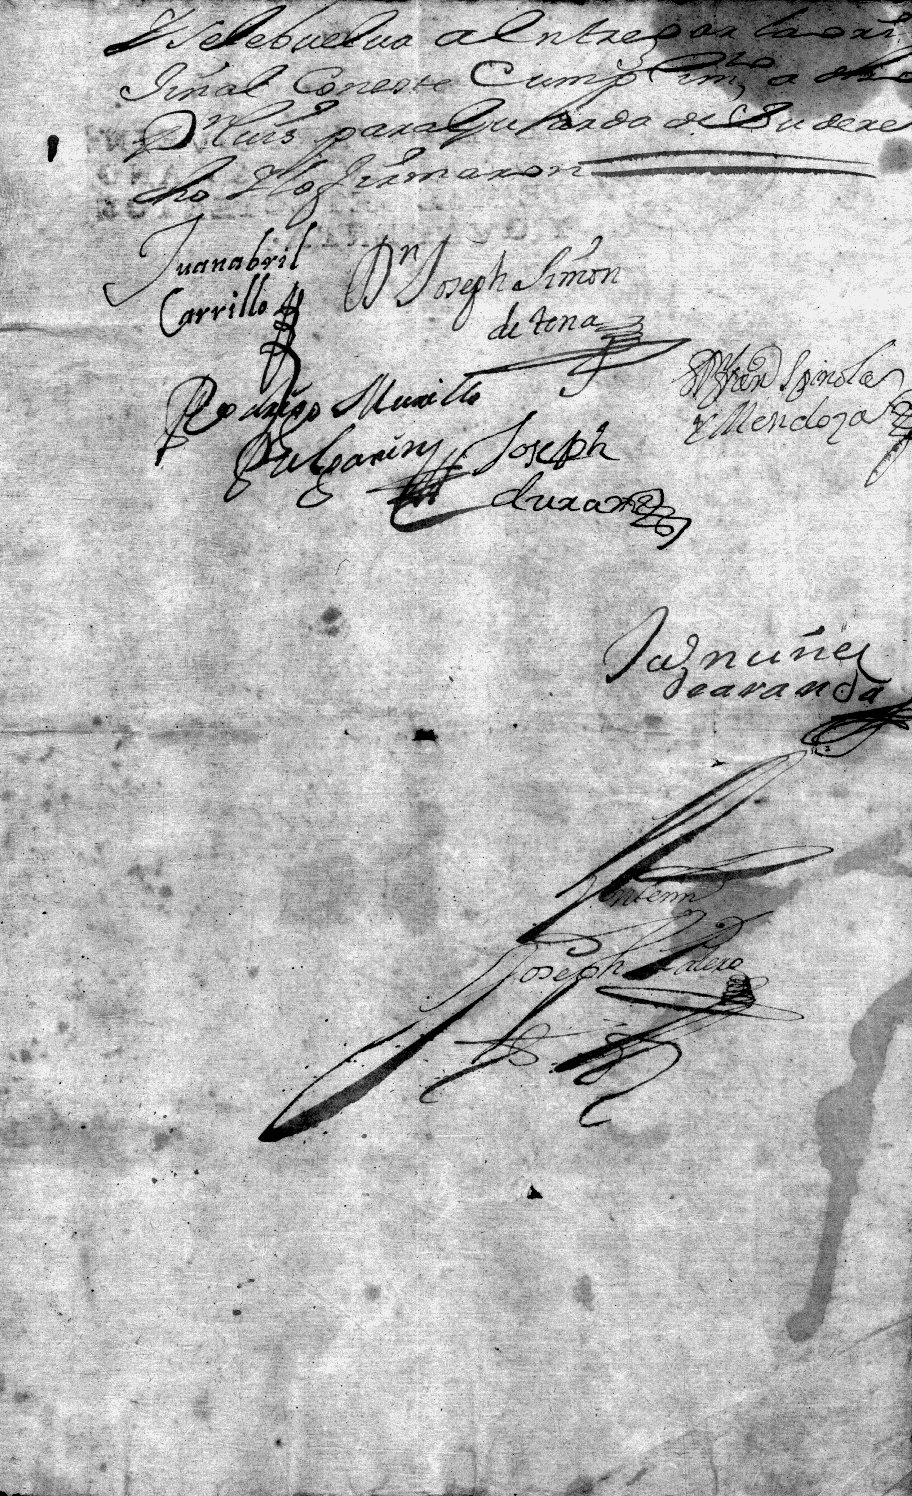 Y se le buelva a Entregar la ori
Jinal Con este Cumplim.to a dho
Dn Luis para Guarda de Su dere
cho Y lo firmaron
Juan abril
Carrillo
Dn Joseph Simon
de tena
Dn fran Spinola
y Mendoza
Rodrigo Murillo
Pulgarin
Joseph
duran
Ju nuñez
de aranda
Ante mi
Joseph